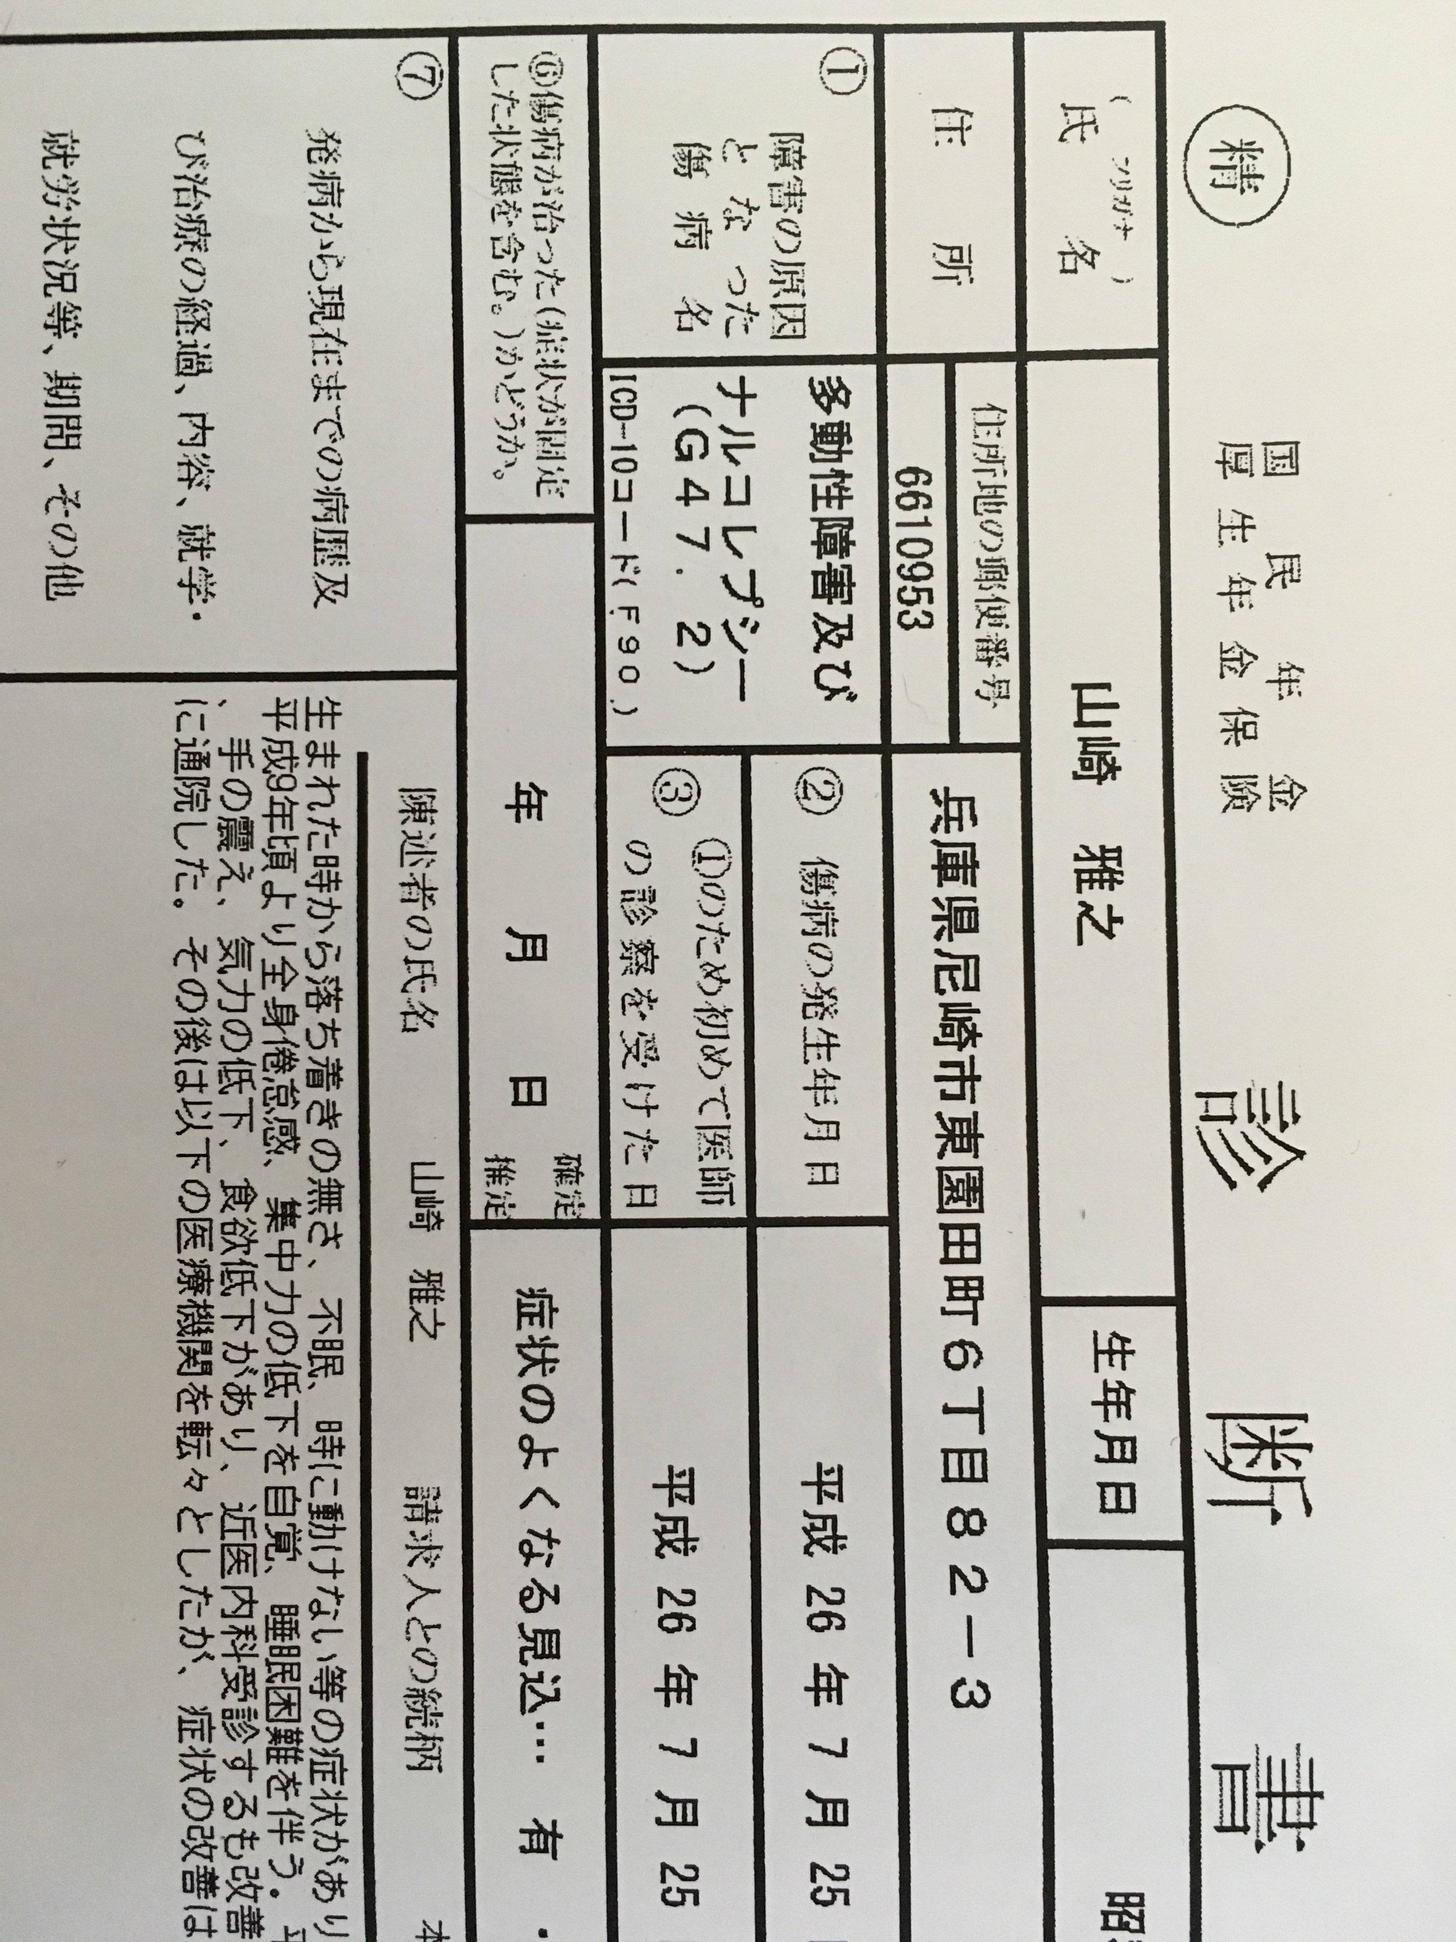 精
国民年金
厚生年金保険
診断書
(フリガナ)
氏名
山崎 雅之
生年月日
昭
住所
住所地の郵便番号
6610953
兵庫県尼崎市東園田町6丁目82-3
①
障害の原因
となった
傷病名
多動性障害及び
ナルコレプシー
(G47.2)
ICD-10コード(F90)
② 傷病の発生年月日
平成 26 年 7 月 25
③ ①のため初めて医師
の診察を受けた日
平成 26 年 7 月 25
⑥傷病が治った(症状が固定
した状態を含む。)かどうか。
年 月 日
確定
推定
症状のよくなる見込… 有 ・
⑦
発病から現在までの病歴及
び治療の経過、内容、就学・
就労状況等、期間、その他
陳述者の氏名 山崎 雅之 請求人との続柄 本
生まれた時から落ち着きの無さ、不眠、時に動けない等の症状があり
平成9年頃より全身倦怠感、集中力の低下を自覚、睡眠困難を伴う。平
、手の震え、気力の低下、食欲低下があり、近医内科受診するも改善
に通院した。その後は以下の医療機関を転々としたが、症状の改善は